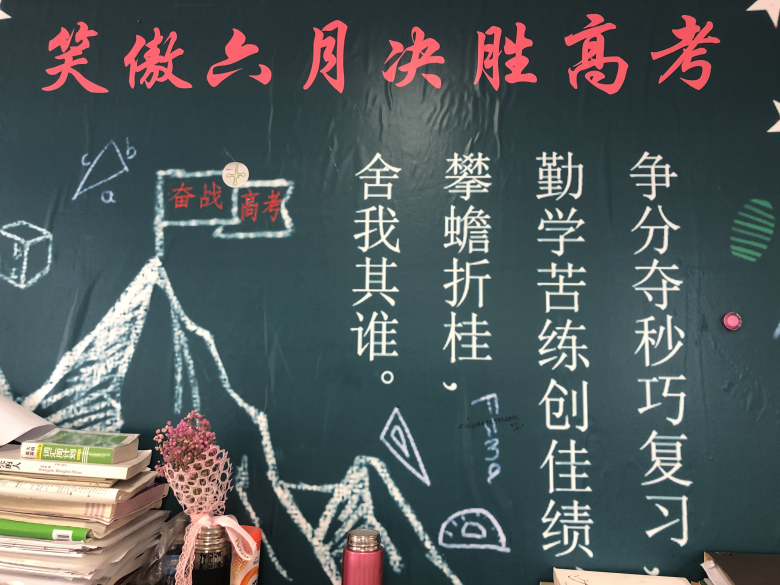 笑傲六月决胜高考
争分夺秒巧复习，
勤学苦练创佳绩，
攀蟾折桂，
舍我其谁。
奋战
高考
c
b
a
F=ma
词汇周计划